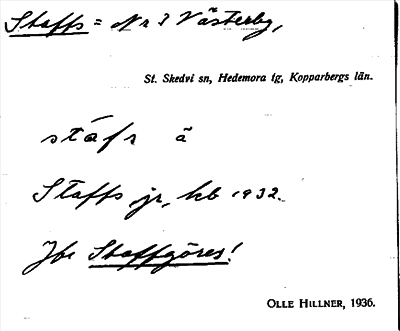 Staffs = Nr 3 Västerby,
St. Skedvi sn, Hedemora tg, Kopparbergs län.
stáfs ä
Staffs jr, kb 1932.
Jfr Staffgöres!
OLLE HILLNER, 1936.